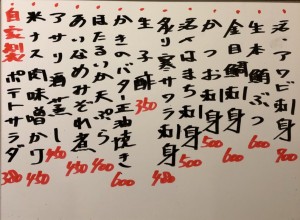 活・アワビ刺身 900
生本鮪ぶつ 600
金目鯛刺身 600
かつお刺身 500
活〆はまち刺身 500
炙り寒サワラ刺身 480
生子酢 350
かきのバタ正油焼き 600
ほたるいか天ぷら 400
あいなめみぞれ煮 450
アサリ酒蒸し 450
米ナス肉味噌かけ 450
自家製ポテトサラダ 380